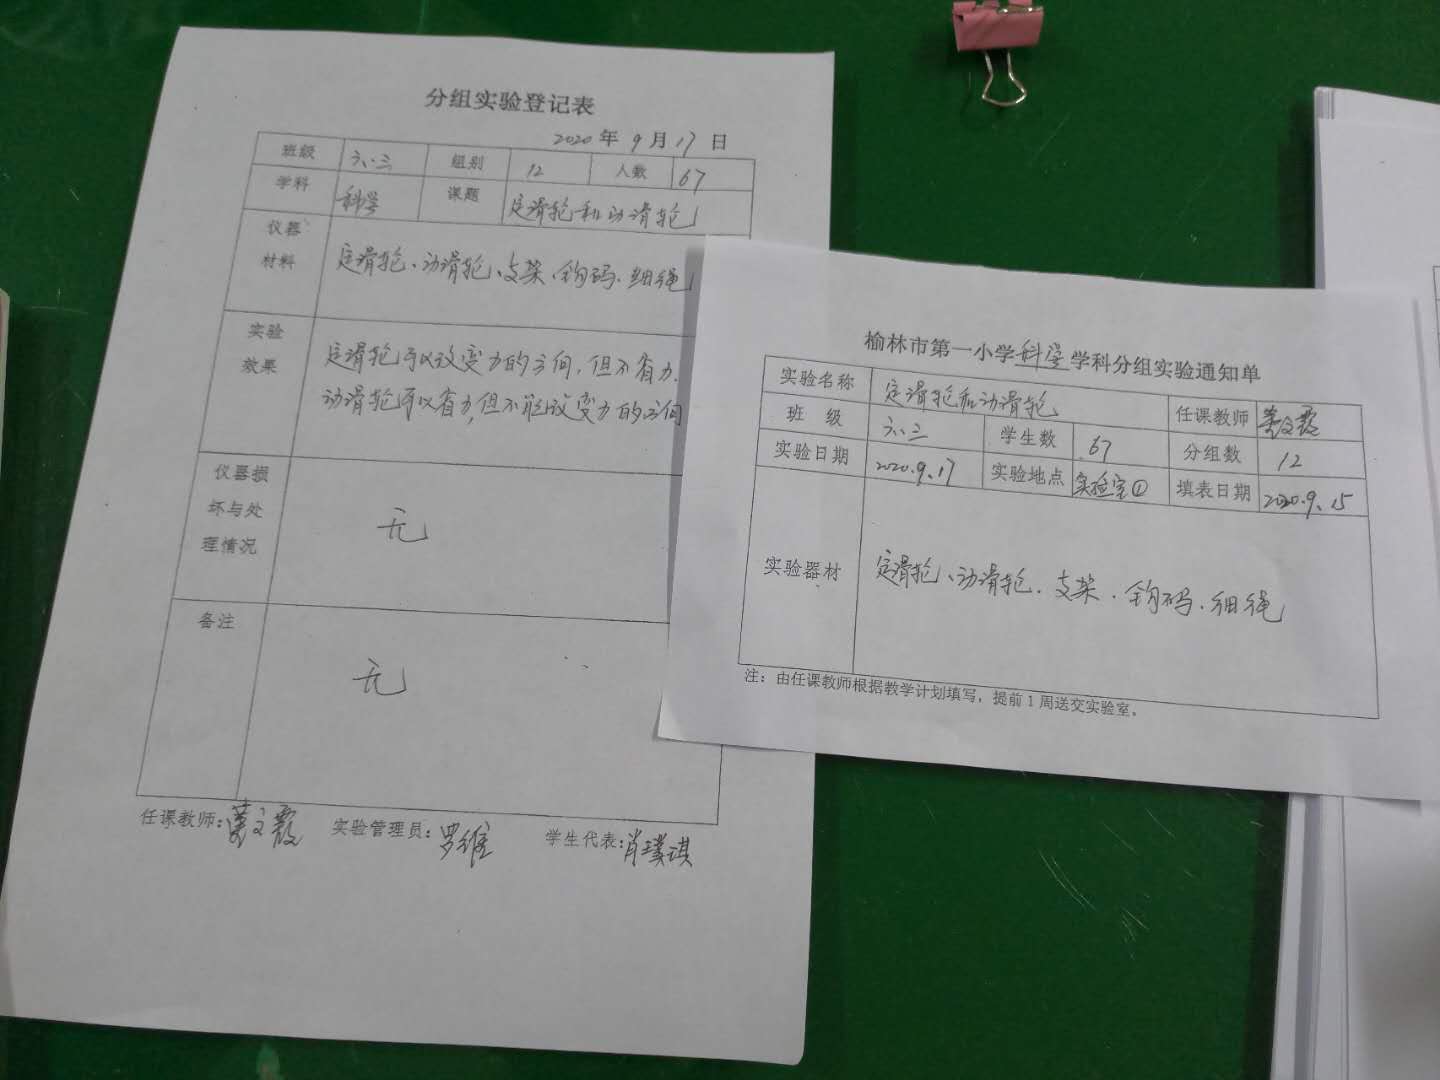 分组实验登记表
2020年9月17日
班级 六.三 组别 12 人数 67
学科 科学 课题 定滑轮和动滑轮
仪器材料 定滑轮、动滑轮、支架、钩码、细绳
实验效果 定滑轮可以改变力的方向,但不省力.
动滑轮可以省力,但不能改变力的方向
仪器损坏与处理情况 无
备注 无
任课教师: 文霞 实验管理员:罗维 学生代表:肖璞琪
榆林市第一小学科学学科分组实验通知单
实验名称 定滑轮和动滑轮 任课教师 文霞
班 级 六.三 学生数 67 分组数 12
实验日期 2020.9.17 实验地点 实验室① 填表日期 2020.9.15
实验器材 定滑轮、动滑轮.支架.钩码.细绳
注:由任课教师根据教学计划填写,提前1周送交实验室。